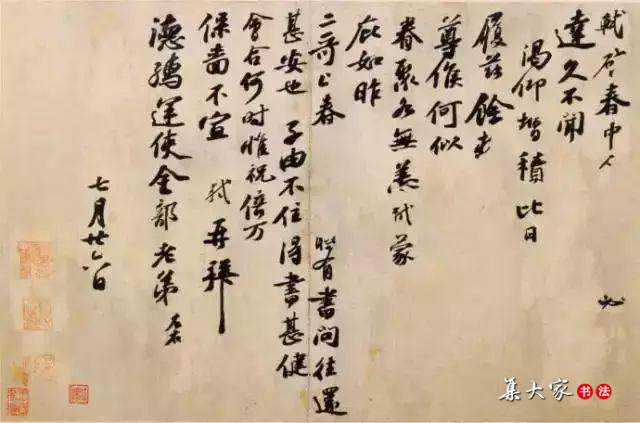 軾啓春中人 必
達久不聞
渴仰增積比日
履茲餘
尊候何似
眷聚各無恙軾蒙
庇如昨
二哥上春 時有書問往還
甚安也子由不住得書甚健
會合何時惟祝倍万
保嗇不宣 軾再拜
德孺運使金部老弟
七月廿六日
集大家 书法